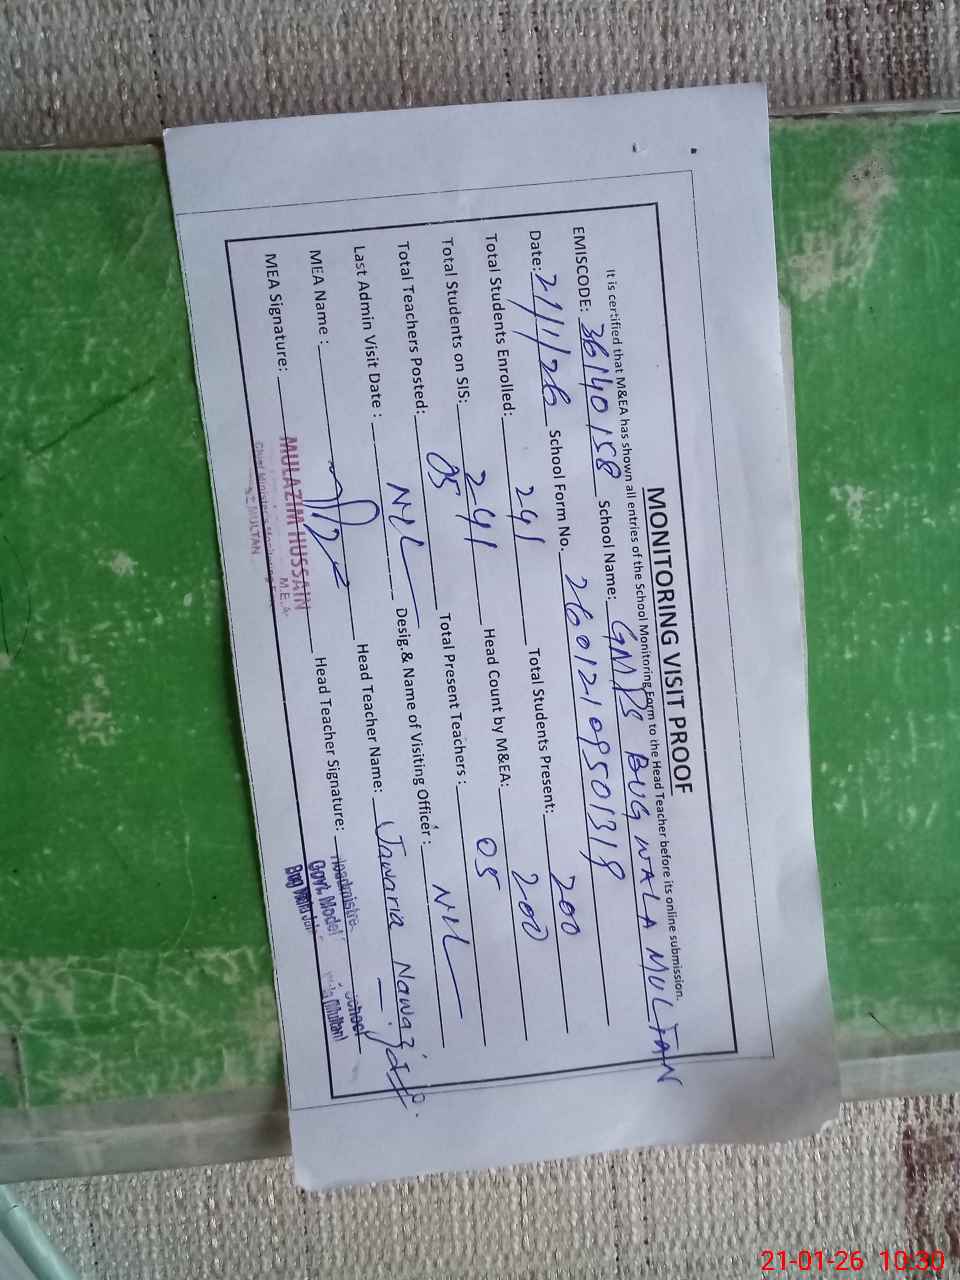 MONITORING VISIT PROOF
It is certified that M&EA has shown all entries of the School Monitoring Form to the Head Teacher before its online submission.
EMISCODE: 36140158 School Name: GMPS BUG WALA MULTAN
Date: 21/1/26 School Form No. 26012109501319
Total Students Enrolled: 241 Total Students Present: 200
Total Students on SIS: 241 Head Count by M&EA: 200
Total Teachers Posted: 05 Total Present Teachers : 05
Last Admin Visit Date : NIL Desig.& Name of Visiting Officer : NIL
MEA Name : Head Teacher Name: Jawaria Nawaz
MEA Signature: Head Teacher Signature:
MULAZIM HUSSAIN
M.E.A.
MULTAN
Govt. Model School
21-01-26 10:30